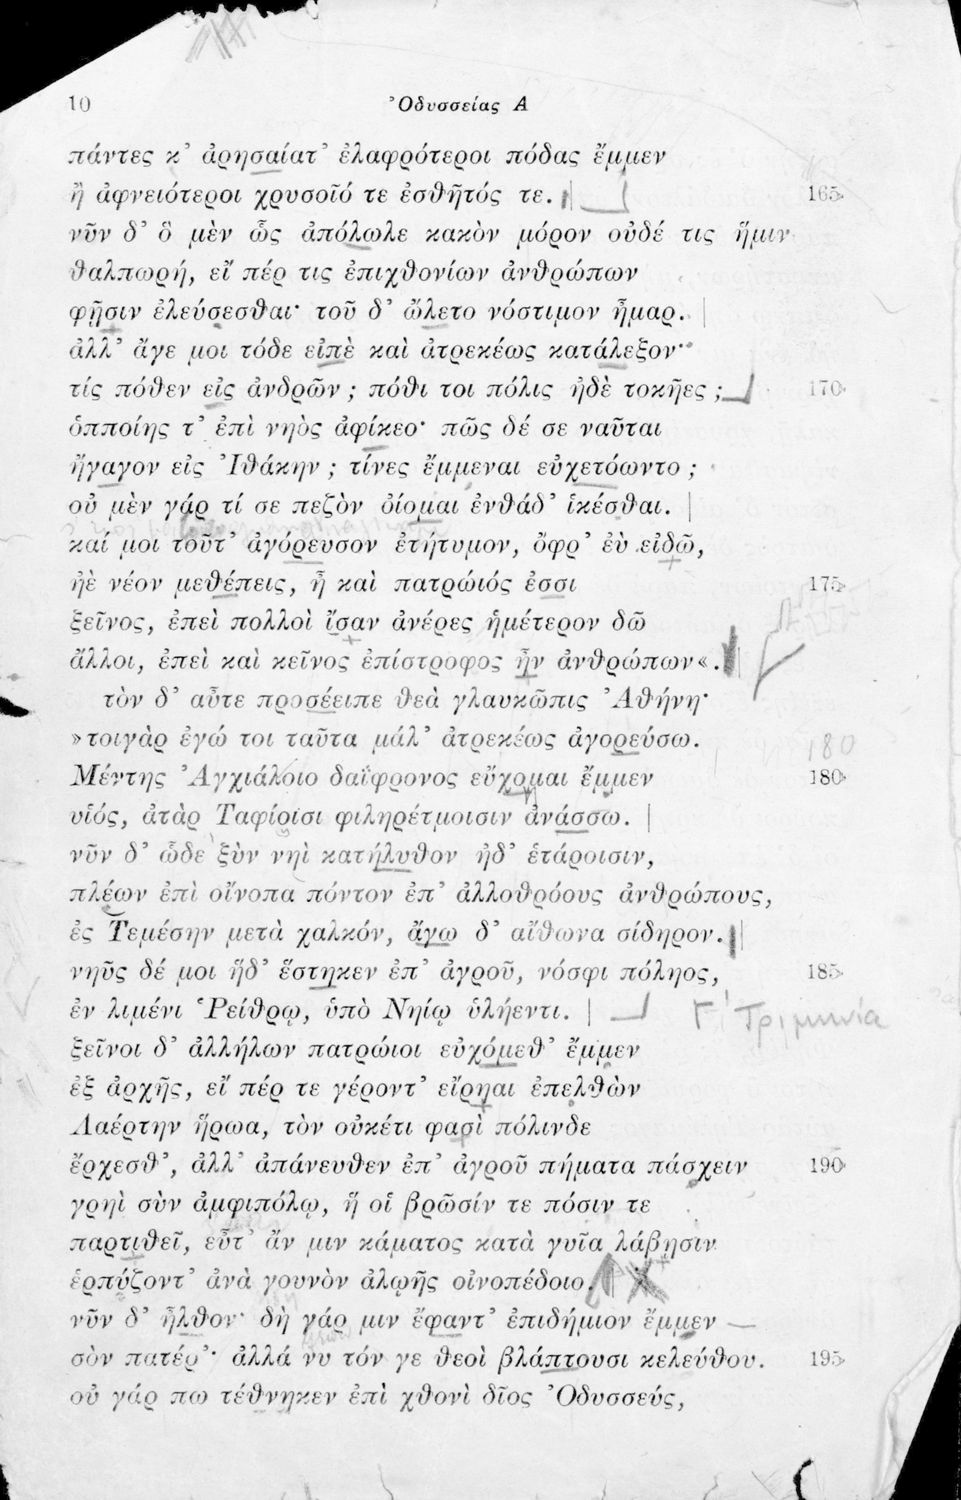 10 Ὀδυσσείας Α
πάντες κ’ ἀρησαίατ’ ἐλαφρότεροι πόδας ἔμμεν
ἢ ἀφνειότεροι χρυσοῖό τε ἐσθῆτός τε. 165
νῦν δ’ ὃ μὲν ὣς ἀπόλωλε κακὸν μόρον οὐδέ τις ἥμιν
θαλπωρή, εἴ πέρ τις ἐπιχθονίων ἀνθρώπων
φῇσιν ἐλεύσεσθαι· τοῦ δ’ ὤλετο νόστιμον ἦμαρ.
ἀλλ’ ἄγε μοι τόδε εἰπὲ καὶ ἀτρεκέως κατάλεξον·
τίς πόθεν εἰς ἀνδρῶν; πόθι τοι πόλις ἠδὲ τοκῆες; 170
ὁπποίης τ’ ἐπὶ νηὸς ἀφίκεο· πῶς δέ σε ναῦται
ἤγαγον εἰς Ἰθάκην; τίνες ἔμμεναι εὐχετόωντο;
οὐ μὲν γάρ τί σε πεζὸν ὀίομαι ἐνθάδ’ ἱκέσθαι.
καί μοι τοῦτ’ ἀγόρευσον ἐτήτυμον, ὄφρ’ ἐὺ εἰδῶ,
ἠὲ νέον μεθέπεις, ἦ καὶ πατρώιός ἐσσι 175
ξεῖνος, ἐπεὶ πολλοὶ ἴσαν ἀνέρες ἡμέτερον δῶ
ἄλλοι, ἐπεὶ καὶ κεῖνος ἐπίστροφος ἦν ἀνθρώπων«.
τὸν δ’ αὖτε προσέειπε θεὰ γλαυκῶπις Ἀθήνη·
»τοιγὰρ ἐγώ τοι ταῦτα μάλ’ ἀτρεκέως ἀγορεύσω.
180
Μέντης Ἀγχιάλοιο δαΐφρονος εὔχομαι ἔμμεν 180
υἱός, ἀτὰρ Ταφίοισι φιληρέτμοισιν ἀνάσσω.
νῦν δ’ ὧδε ξὺν νηὶ κατήλυθον ἠδ’ ἑτάροισιν,
πλέων ἐπὶ οἴνοπα πόντον ἐπ’ ἀλλοθρόους ἀνθρώπους,
ἐς Τεμέσην μετὰ χαλκόν, ἄγω δ’ αἴθωνα σίδηρον.
νηῦς δέ μοι ἥδ’ ἕστηκεν ἐπ’ ἀγροῦ, νόσφι πόληος, 185
ἐν λιμένι Ῥείθρῳ, ὑπὸ Νηίῳ ὑλήεντι. Γ' Τριμηνία
ξεῖνοι δ’ ἀλλήλων πατρώιοι εὐχόμεθ’ ἔμμεν
ἐξ ἀρχῆς, εἴ πέρ τε γέροντ’ εἴρηαι ἐπελθὼν
Λαέρτην ἥρωα, τὸν οὐκέτι φασὶ πόλινδε
ἔρχεσθ’, ἀλλ’ ἀπάνευθεν ἐπ’ ἀγροῦ πήματα πάσχειν 190
γρηὶ σὺν ἀμφιπόλῳ, ἥ οἱ βρῶσίν τε πόσιν τε
παρτιθεῖ, εὖτ’ ἄν μιν κάματος κατὰ γυῖα λάβῃσιν
ἑρπύζοντ’ ἀνὰ γουνὸν ἀλῳῆς οἰνοπέδοιο.
νῦν δ’ ἦλθον· δὴ γάρ μιν ἔφαντ’ ἐπιδήμιον ἔμμεν
σὸν πατέρ’· ἀλλά νυ τόν γε θεοὶ βλάπτουσι κελεύθου. 195
οὐ γάρ πω τέθνηκεν ἐπὶ χθονὶ δῖος Ὀδυσσεύς,